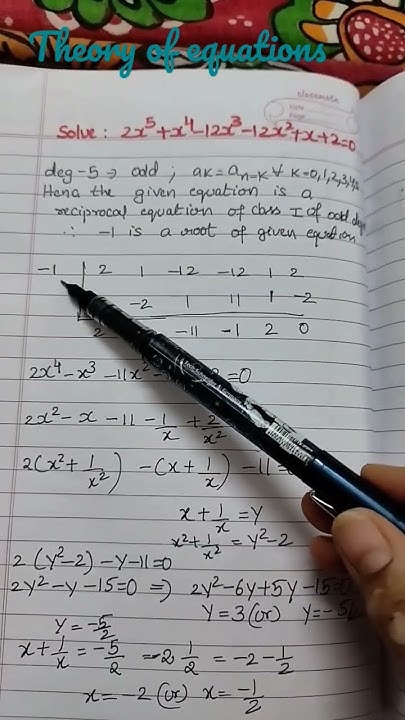 Theory of equations
classmate
Date
Page
Solve : 2x⁵+x⁴-12x³-12x²+x+2=0
deg-5 ⇒ odd ; aK = an-K ∀ K=0,1,2,3,4,5
Hena the given equation is a
reciprocal equation of class I of odd deg
∴ -1 is a root of given equation
-1 | 2 1 -12 -12 1 2
-2 1 11 1 -2
2 -11 -1 2 0
2x⁴-x³-11x²- =0
2x²-x-11-1/x+2/x²
2(x²+1/x²) -(x+1/x) -11=0
x+1/x=Y
x²+1/x²=Y²-2
2(Y²-2)-Y-11=0
2Y²-Y-15=0 ⇒ 2Y²-6Y+5Y-15=0
Y=3(or) Y=-5/
Y=-5/2
x+1/x=-5/2 =-2 1/2 =-2-1/2
x=-2(or) x=-1/2